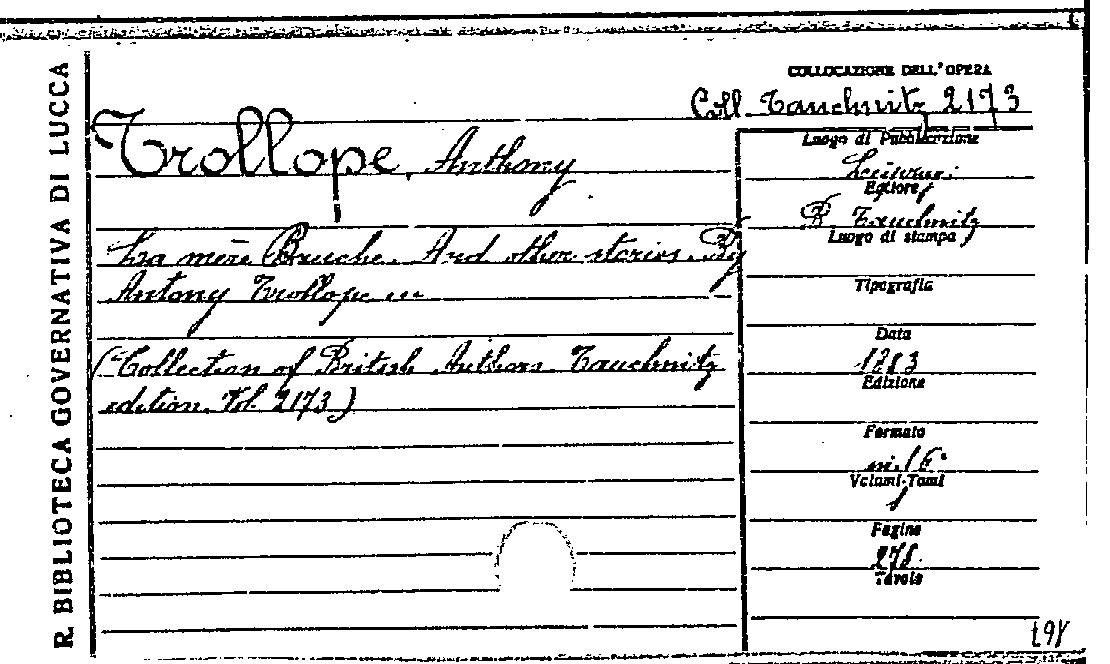 R. BIBLIOTECA GOVERNATIVA DI LUCCA
COLLOCAZIONE DELL'OPERA
Coll. Tauchnitz 2173
Trollope, Anthony
La mère Bauche. And other stories. By
Antony Trollope ...
(Collection of British Authors Tauchnitz
edition. Vol. 2173)
Luogo di Pubblicazione
Editore
B. Tauchnitz
Luogo di stampa
Tipografia
Data
1883
Edizione
Formato
in.16°
Volumi-Tomi
1
Pagine
278
Tavole